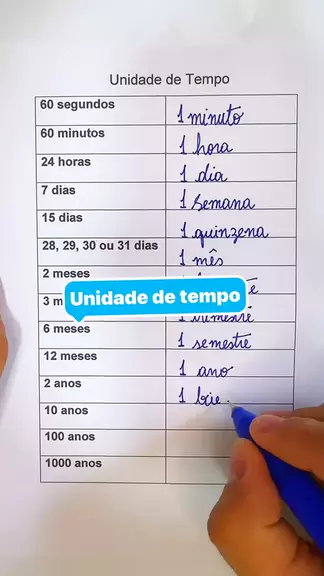 Unidade de Tempo
60 segundos 1 minuto
60 minutos 1 hora
24 horas 1 dia
7 dias 1 semana
15 dias 1 quinzena
28, 29, 30 ou 31 dias 1 mês
2 meses
Unidade de tempo
3 1 trimestre
6 meses 1 semestre
12 meses 1 ano
2 anos 1 bie
10 anos
100 anos
1000 anos